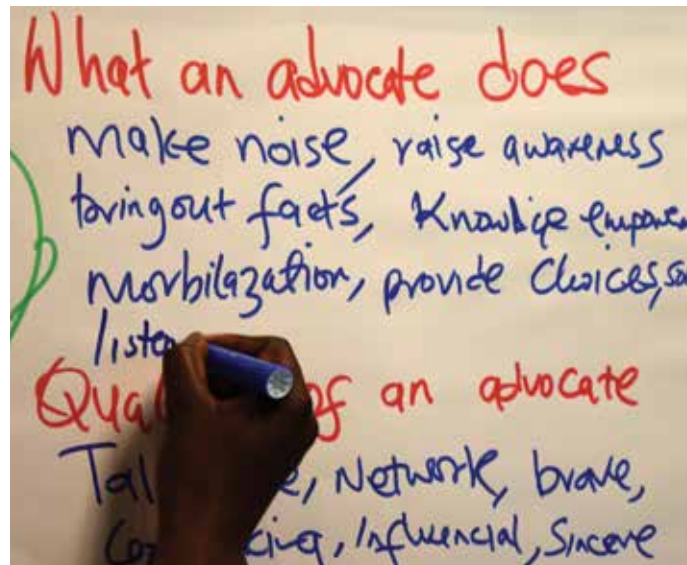 What an advocate does
make noise, raise awareness
bring out facts, Knowlige
morbilazation, provide Choices,
of an advocate
Network, brave,
Influencial, Sincere